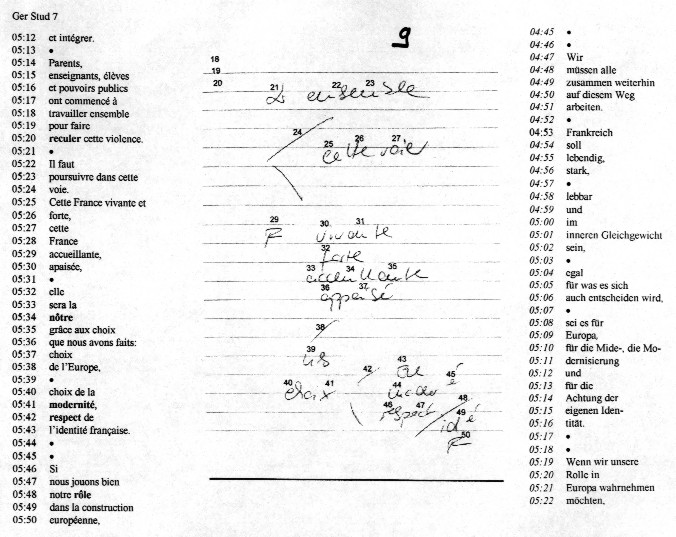 Ger Stud 7
9
05:12 et intégrer.
05:13 •
05:14 Parents,
05:15 enseignants, élèves
05:16 et pouvoirs publics
05:17 ont commencé à
05:18 travailler ensemble
05:19 pour faire
05:20 reculer cette violence.
05:21 •
05:22 Il faut
05:23 poursuivre dans cette
05:24 voie.
05:25 Cette France vivante et
05:26 forte,
05:27 cette
05:28 France
05:29 accueillante,
05:30 apaisée,
05:31 •
05:32 elle
05:33 sera la
05:34 nôtre
05:35 grâce aux choix
05:36 que nous avons faits:
05:37 choix
05:38 de l'Europe,
05:39 •
05:40 choix de la
05:41 modernité,
05:42 respect de
05:43 l'identité française.
05:44 •
05:45 •
05:46 Si
05:47 nous jouons bien
05:48 notre rôle
05:49 dans la construction
05:50 européenne,
18
19
20
21 22 23
ensemble
24
25 26 27
cette voie
29 30 31
F vivante
32
forte
33 34 35
accueillante
36 37
apaisé
38
39
42 43
40 41 44 45
choix
46 47 48
respect
49
idé
50
F
04:45 •
04:46 •
04:47 Wir
04:48 müssen alle
04:49 zusammen weiterhin
04:50 auf diesem Weg
04:51 arbeiten.
04:52 •
04:53 Frankreich
04:54 soll
04:55 lebendig,
04:56 stark,
04:57 •
04:58 lebbar
04:59 und
05:00 im
05:01 inneren Gleichgewicht
05:02 sein,
05:03 •
05:04 egal
05:05 für was es sich
05:06 auch entscheiden wird,
05:07 •
05:08 sei es für
05:09 Europa,
05:10 für die Mide-, die Mo-
05:11 dernisierung
05:12 und
05:13 für die
05:14 Achtung der
05:15 eigenen Iden-
05:16 tität.
05:17 •
05:18 •
05:19 Wenn wir unsere
05:20 Rolle in
05:21 Europa wahrnehmen
05:22 möchten,